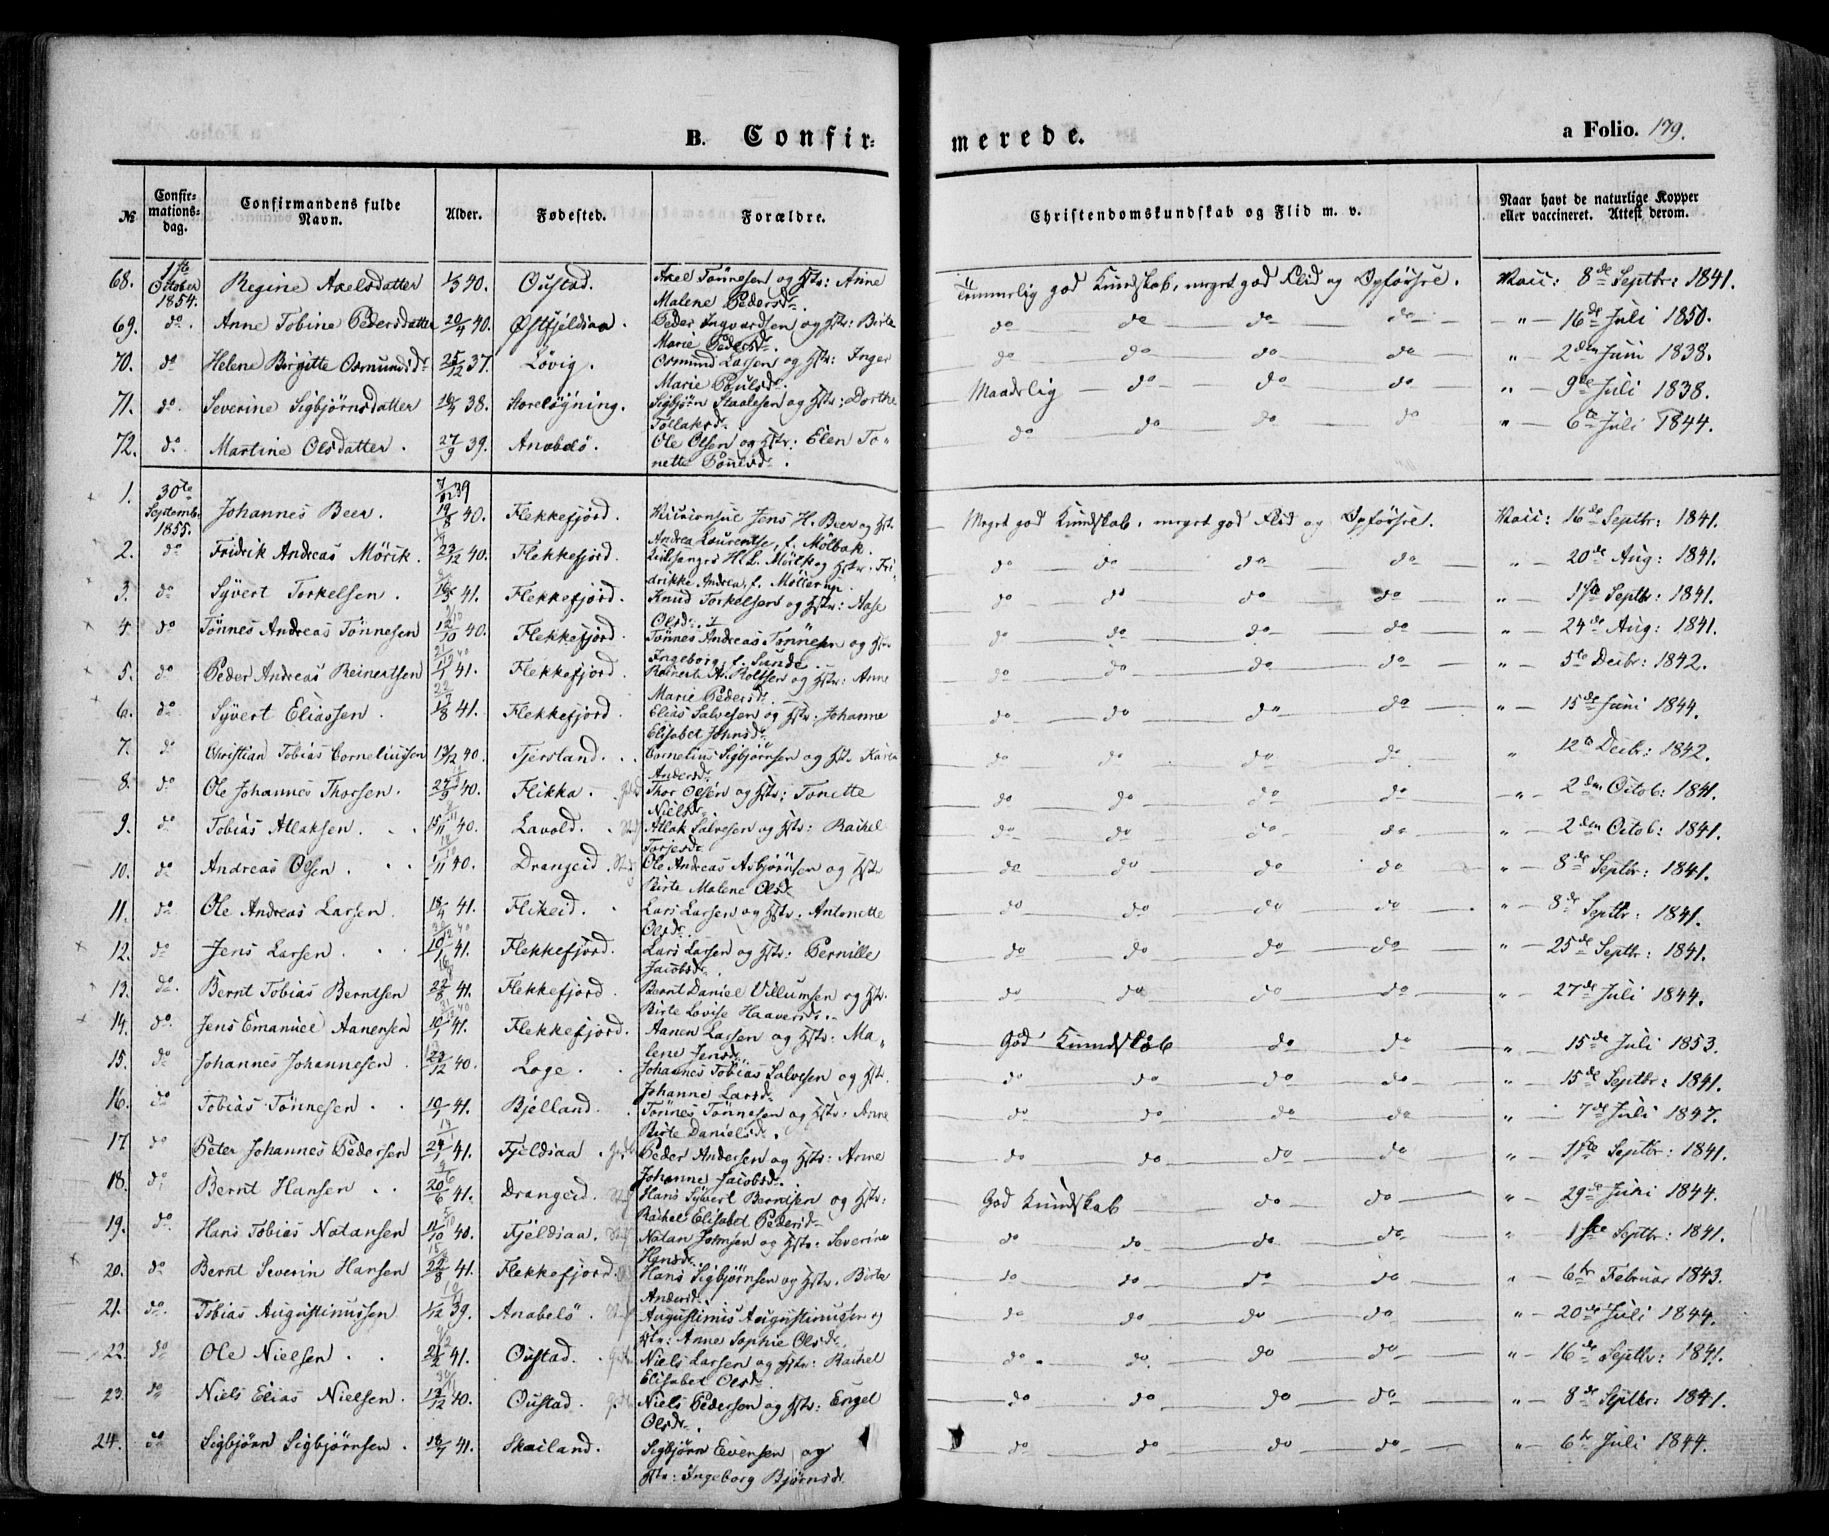 B. Confir-
merede.
a Folio. 179.
№
Confir-
mations-
dag.
Confirmandens fulde
Navn.
Alder.
Fødested.
Forældre.
Christendomskundskab og Flid m. v.
Naar havt de naturlige Kopper
eller vaccineret. Attest derom.
68. 1ste October 1854. Regine Axelsdatter 1/3 40. Oustad. Axel Tönnesen og Hstr: Anne
Malene Pedersd. Temmerlig god Kundskab, meget god Flid og Opførsel. Vacc: 8de Septbr: 1841.
69. do. Anne Tobine Pedersdatter 20/4 40. Østfjeldsaa. Peder Ingvardsen og Hstr: Birte
Marie Pedersd. do do do do " 16de Juli 1850.
70. do Helene Birgitte Osmundsd. 25/12 37. Lövig. Osmund Larsen og Hstr: Inger
Marie Poulsd. do do do do " 2den Juni 1838.
71. do. Severine Sigbjørnsdatter 38. Storeløgning. Sigbjørn Staalesen og Hstr: Dorthe
Tollaksd. Maadelig do do do " 9de Juli 1838.
72. do. Martine Olsdatter. 27/9 39. Anabelö. Ole Olsen og Hstr: Elen To-
nette Tönnesd. do do do do " 6te Juli 1844.
1. 30te Septemb. 1855. Johannes Beer. 19/8 40. Flekkefjord. Viceconsul Jens H. Beer og Hst.
Andrea Laurentse, f. Mölbak. Meget god Kundskab, meget god Flid og Opførsel. Vacc: 16de Septbr: 1841.
2. do Fridrik Andreas Mörik. 23/12 40. Flekkefjord. H. L. Mörik og Hstr. Fri-
drikke Andrea, f. Möllerup. do do do do " 20de Aug: 1841.
3. do Syvert Torkelsen. 41. Flekkefjord. Knud Torkelsen og Hstr: Aase
Olsd. do do do do " 17de Septbr: 1841.
4. do Tönnes Andreas Tönnesen 12/10 40. Flekkefjord. Tönnes Andreas Tönnesen og Hstr
Ingeborg, f. Sunde. do do do do " 24de Aug: 1841.
5. do Peder Andreas Reinertsen 41. Flekkefjord. Reinert A. Rolfsen og Hstr: Anne
Marie Pedersd. do do do do " 5te Decbr: 1842.
6. do Syvert Eliassen. 41. Flekkefjord. Elias Salvesen og Hstr: Johanne
Elisabet Johnsd. do do do do " 15de Juni 1844.
7. do Christian Tobias Corneliussen 13/12 40. Tjersland. Cornelius Sigbjørnsen og Hstr. Karen
Andersd. do do do do " 12te Decbr: 1842.
8. do Ole Johannes Thorsen. 27/9 40. Flikka. Thor Olsen og Hstr: Tonette
Nielsd. do do do do " 2den Octob: 1841.
9. do Tobias Atlaksen. 15/11 40. Lavold. Atlak Salvesen og Hstr: Rachel
Torjersd. do do do do " 2den Octob: 1841.
10. do Andreas Olsen. 1/11 40. Drangeid. Ole Andreas Asbjørnsen og Hstr
Birte Malene Olsd. do do do do " 8de Septbr: 1841.
11. do Ole Andreas Larsen. 18/4 41. Flikeid. Lars Larsen og Hstr. Antonette
Olsd. do do do do " 8de Septbr: 1841.
12. do Jens Larsen. 10/1 41. Flekkefjord. Lars Larsen og Hstr: Pernille
Jacobsd. do do do do " 25de Septbr: 1841.
13. do. Bernt Tobias Berntsen 22/8 41. Flekkefjord. Bernt Daniel Villumsen og Hstr.
Birte Lovise Haaversd. do do do do " 27de Juli 1844.
14. do. Jens Emanuel Aanensen 10/1 41. Flekkefjord. Aanen Larsen og Hstr: Ma-
lene Jensd. God Kundskab do do " 15de Juli 1853.
15. do Johannes Johannesen. 23/12 40. Loge. Johannes Tobias Salvesen og Hstr.
Johanne Larsd. do do do do " 15de Septbr: 1841.
16. do Tobias Tönnesen. 10/1 41. Bjelland. Tönnes Tönnesen og Hstr: Anne
Birte Danielsd. do do do do " 7de Juli 1847.
17. do Peter Johannes Pedersen 24/1 41. Fjeldsaa. Peder Andersen og Hstr: Anne
Johanne Jacobsd. do do do do " 11te Septbr: 1841.
18. do Bernt Hansen. 20/6 41. Drangeid. Hans Syvert Berntsen og Hstr:
Rachel Elisabet Pedersd. God Kundskab do do " 29de Juni 1844.
19. do. Hans Tobias Natansen 11/10 40. Fjeldsaa. Natan Johnsen og Hstr. Severine
Hansd. do do do do " 1ste Septbr: 1841.
20. do Bernt Severin Hansen 22/8 41. Flekkefjord. Hans Sigbjørnsen og Hstr. Birte
Andersd. do do do do " 6te Februar 1843.
21. do. Tobias Augustinussen 1/12 39. Anabelö. Augustinus Augustinusen og
Hstr: Anne Sophie Olsd. do do do do " 20de Juli 1844.
22. do Ole Nielsen. 21/2 41. Oustad. Niels Larsen og Hstr: Rachel
Elisabet Olsd. do do do do " 16de Septbr: 1841.
23. do Niels Elias Nielsen. 13/12 40. Oustad. Niels Pedersen og Hstr: Engel
Olsd. do do do do " 8de Septbr: 1841.
24. do Sigbjørn Sigbjørnsen. 18/7 41. Skailand. Sigbjørn Evensen og
Hstr: Ingeborg Bjørnsd. do do do do " 6te Juli 1844.